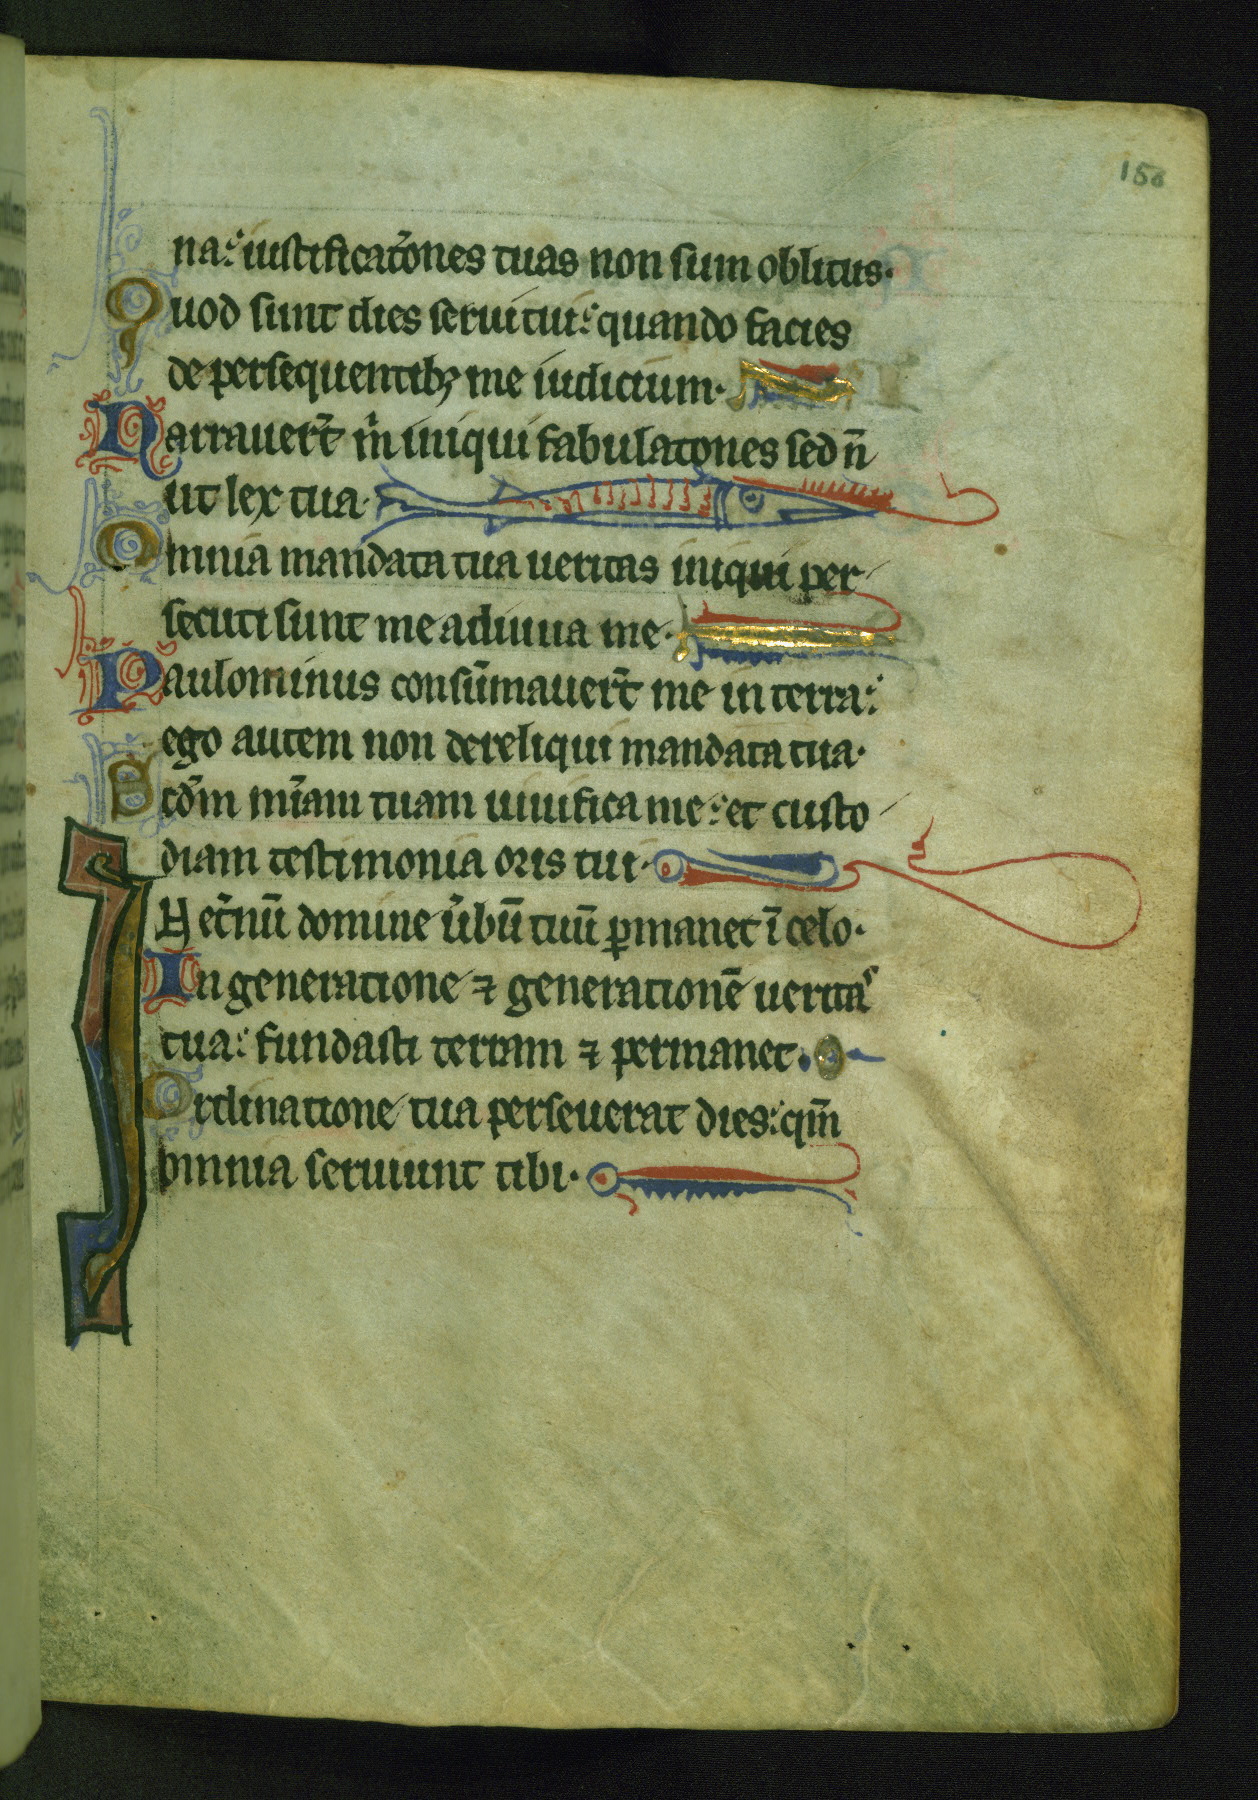 158
na: iustificat̃ones tuas non sum oblitus.
Quod sunt dies serui tui: quando facies
de persequentibꝫ me iudicium.
Narrauer̃t m̃ iniqui fabulatones sed ñ
ut lex tua.
Omnia mandata tua ueritas iniqui per
secuti sunt me adiuua me.
Paulominus consũmauer̃t me in terra:
ego autem non dereliqui mandata tua.
Scd̃m mr̃am tuam uiuifica me: et custo
diam testimonia oris tui.
IN et̃nũ domine ũbũ tuũ ꝑmanet ĩ celo.
In generatione ⁊ generationẽ ueritas
tua: fundasti terram ⁊ permanet.
Ordinatione tua perseuerat dies: qm̃
omnia seruiunt tibi.